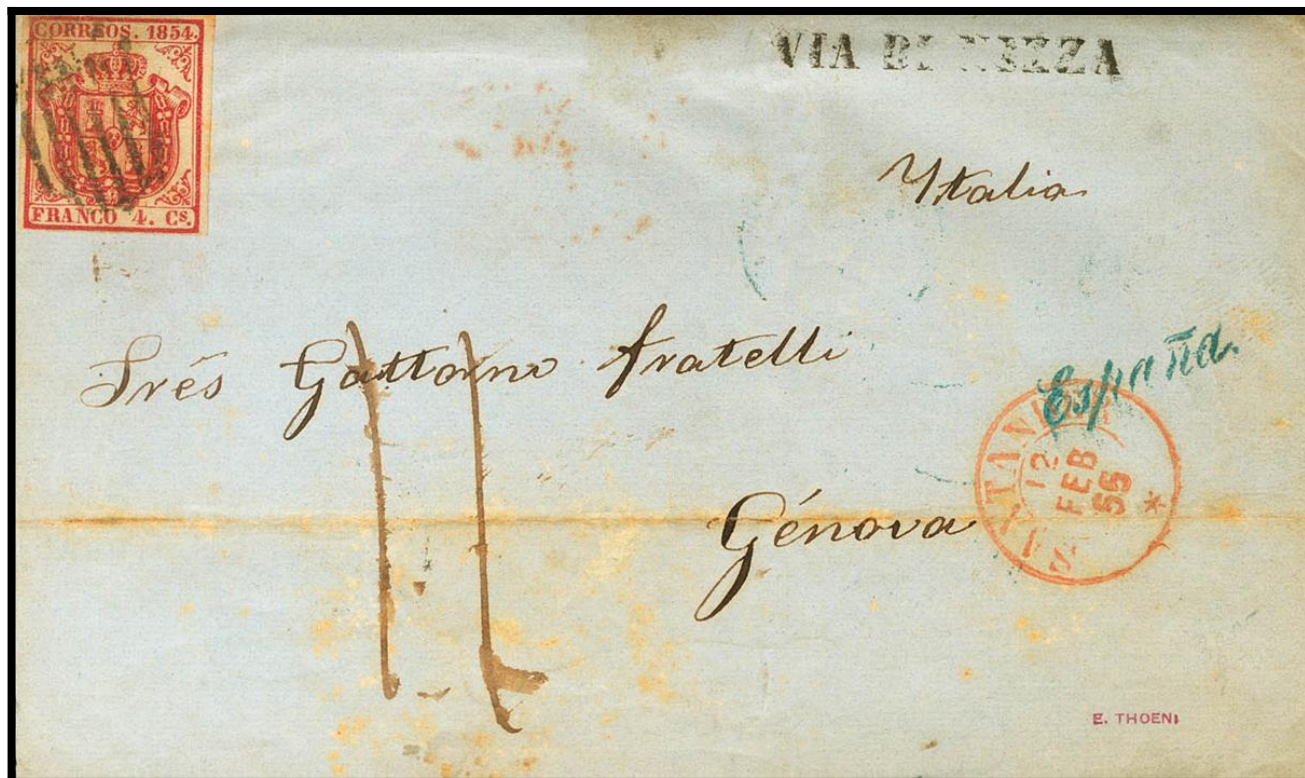 CORREOS. 1854.
FRANCO 4. Cs.
VIA DI NIZZA
Ytalia
Srés Gattorno fratelli
España.
Génova
SANTANDER
12
FEB
55
*
11
E. THOENI